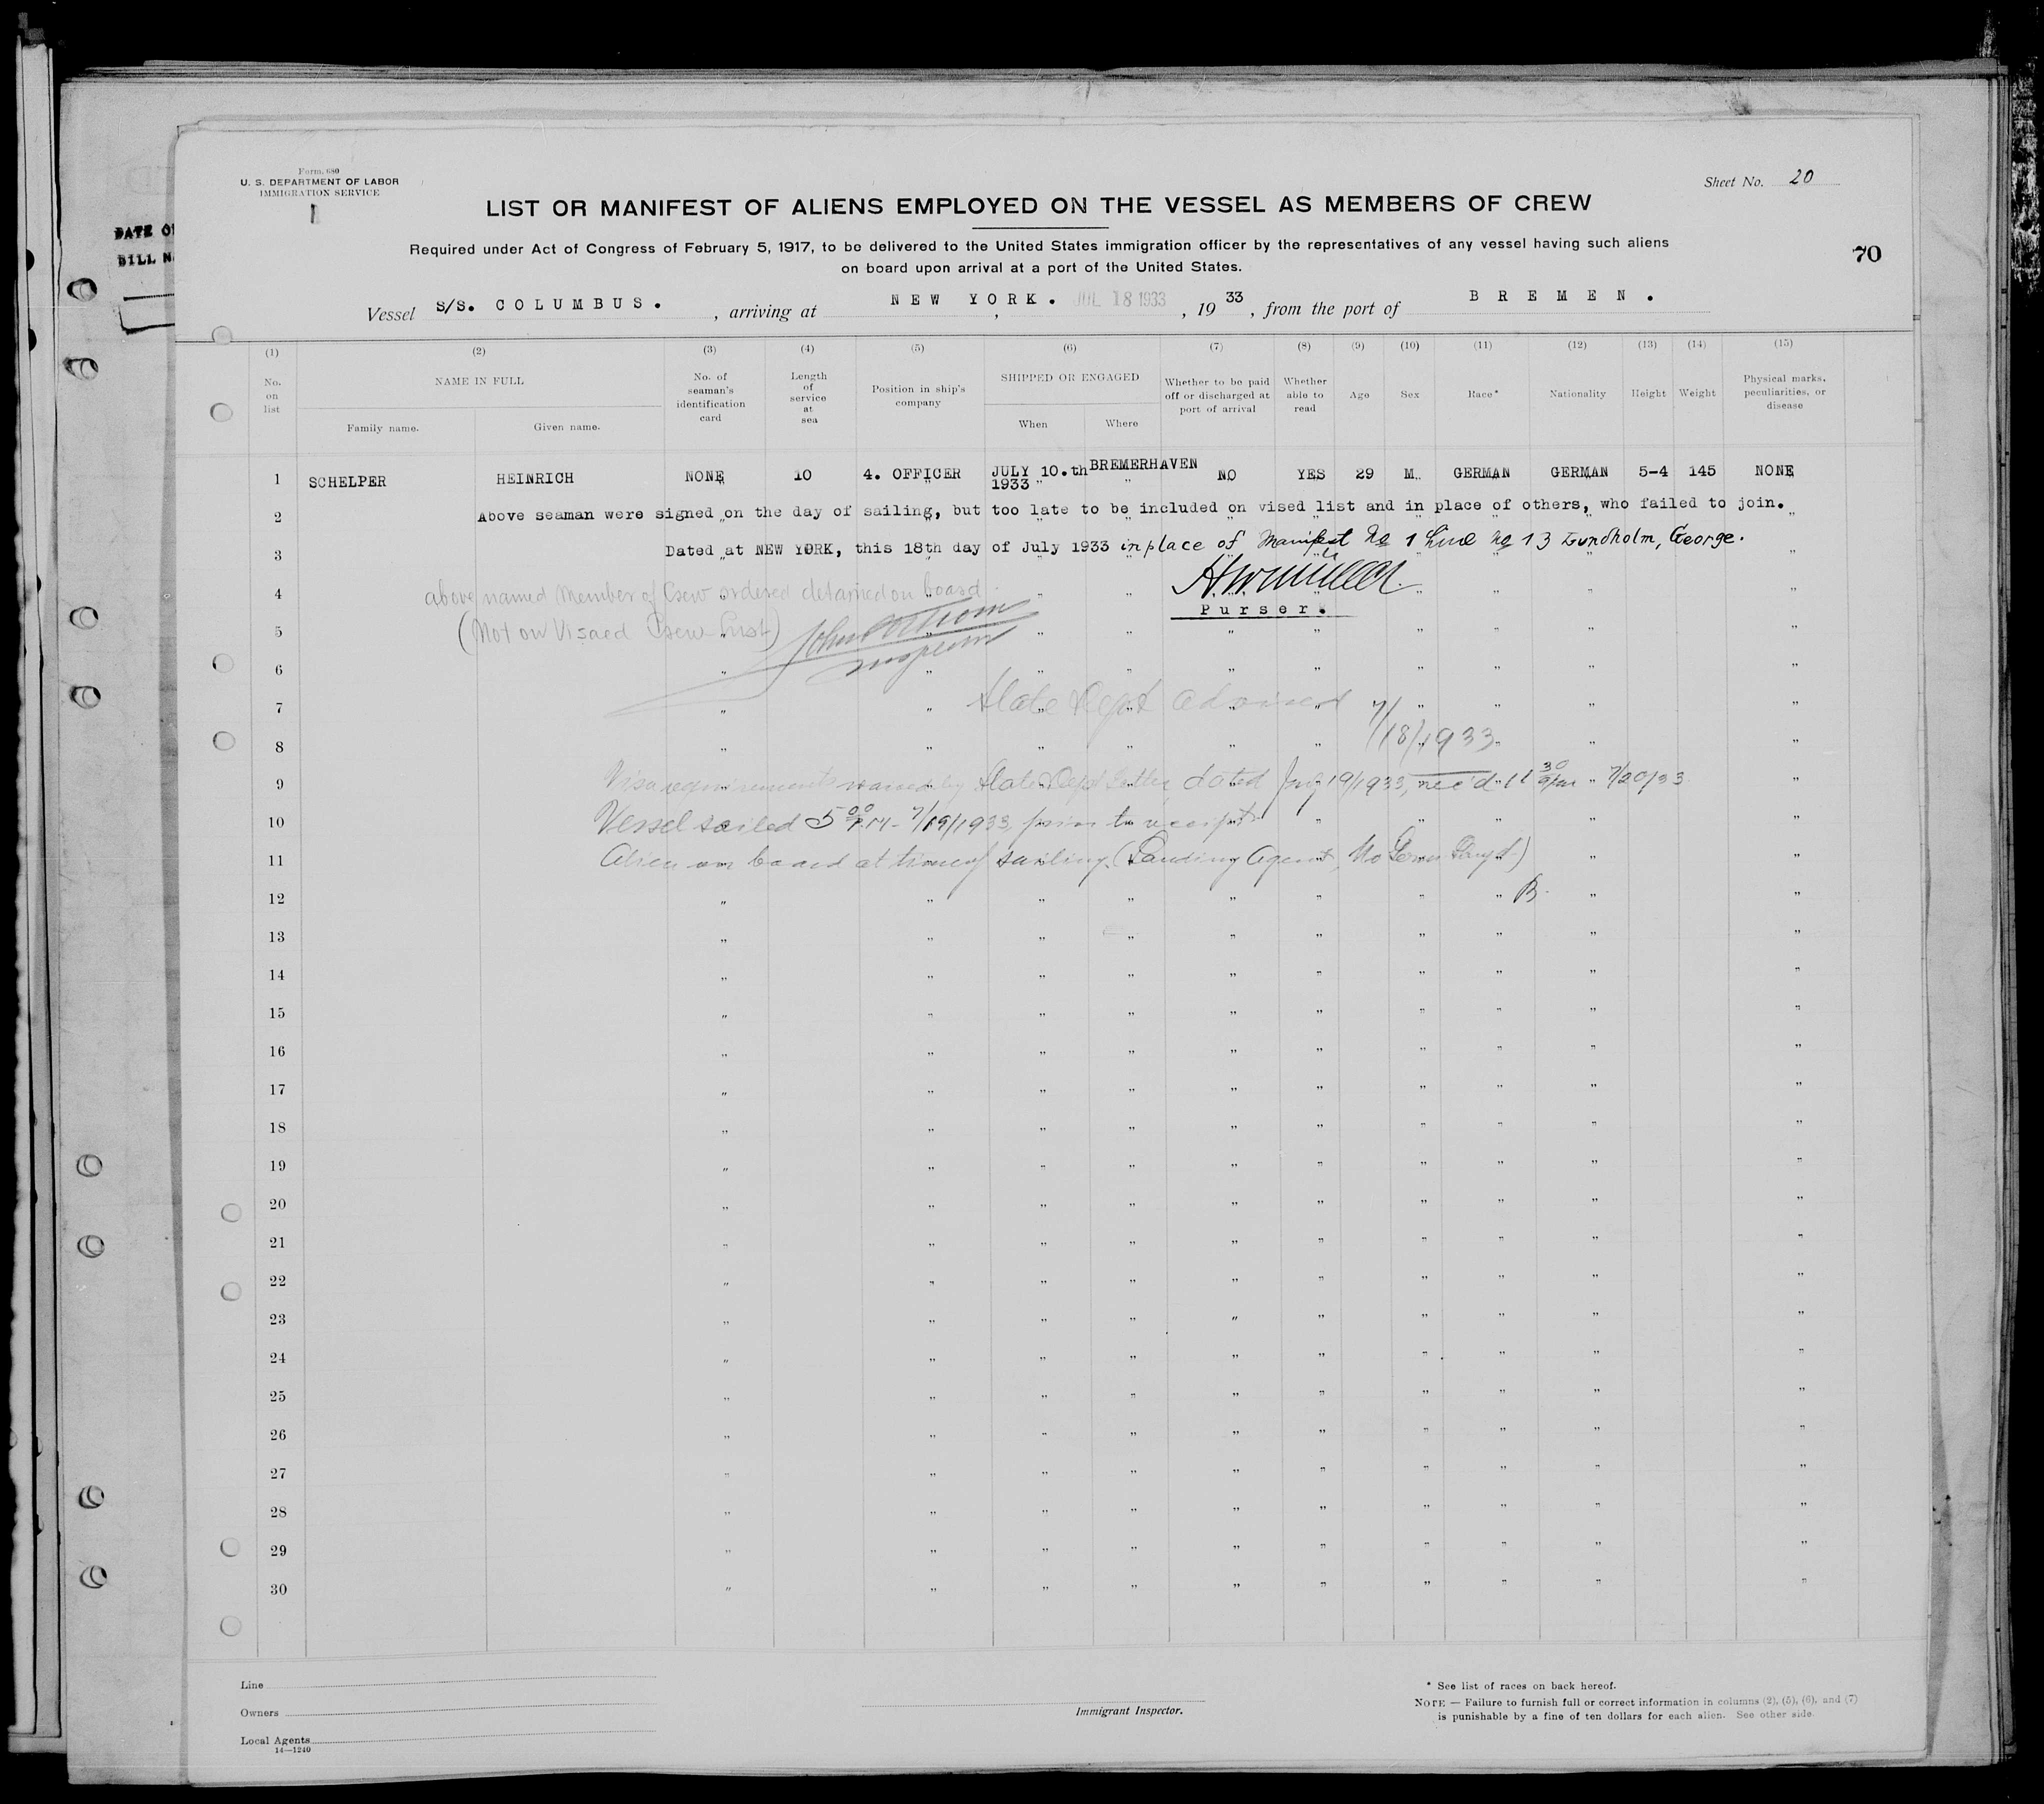 Form 680
U. S. DEPARTMENT OF LABOR
IMMIGRATION SERVICE
Sheet No. 20
LIST OR MANIFEST OF ALIENS EMPLOYED ON THE VESSEL AS MEMBERS OF CREW
Required under Act of Congress of February 5, 1917, to be delivered to the United States immigration officer by the representatives of any vessel having such aliens
on board upon arrival at a port of the United States.
70
DATE O
BILL N
Vessel S/S. COLUMBUS. , arriving at NEW YORK. JUL 18 1933 , 19 33 , from the port of BREMEN.
(1) (2) (3) (4) (5) (6) (7) (8) (9) (10) (11) (12) (13) (14) (15)
No. on list
NAME IN FULL
Family name. Given name.
No. of seaman's identification card
Length of service at sea
Position in ship's company
SHIPPED OR ENGAGED
When Where
Whether to be paid off or discharged at port of arrival
Whether able to read
Age
Sex
Race*
Nationality
Height
Weight
Physical marks, peculiarities, or disease
1 SCHELPER HEINRICH NONE 10 4. OFFICER JULY 10.th 1933 BREMERHAVEN NO YES 29 M. GERMAN GERMAN 5-4 145 NONE
2 Above seaman were signed on the day of sailing, but too late to be included on vised list and in place of others, who failed to join.
3 Dated at NEW YORK, this 18th day of July 1933 in place of Manifest No 1 Line No 13 Lundholm, George.
4 above named Member of Crew ordered detained on board
Purser.
5 (Not on Visaed Crew List)
6 Inspector
7 State Dept advised 7/
8 /18/1933
9 Visa requirements waived by State Dept letter, dated July 19/1933, rec'd 11 30 am 7/20/33
10 Vessel sailed 5 00 P.M. 7/19/1933 prior to receipt
11 Alien on board at time of sailing (Landing Agent, No Germ Lloyd)
12 B.
13
14
15
16
17
18
19
20
21
22
23
24
25
26
27
28
29
30
Line
Owners
Local Agents
14—1240
Immigrant Inspector.
* See list of races on back hereof.
NOTE — Failure to furnish full or correct information in columns (2), (5), (6), and (7)
is punishable by a fine of ten dollars for each alien. See other side.